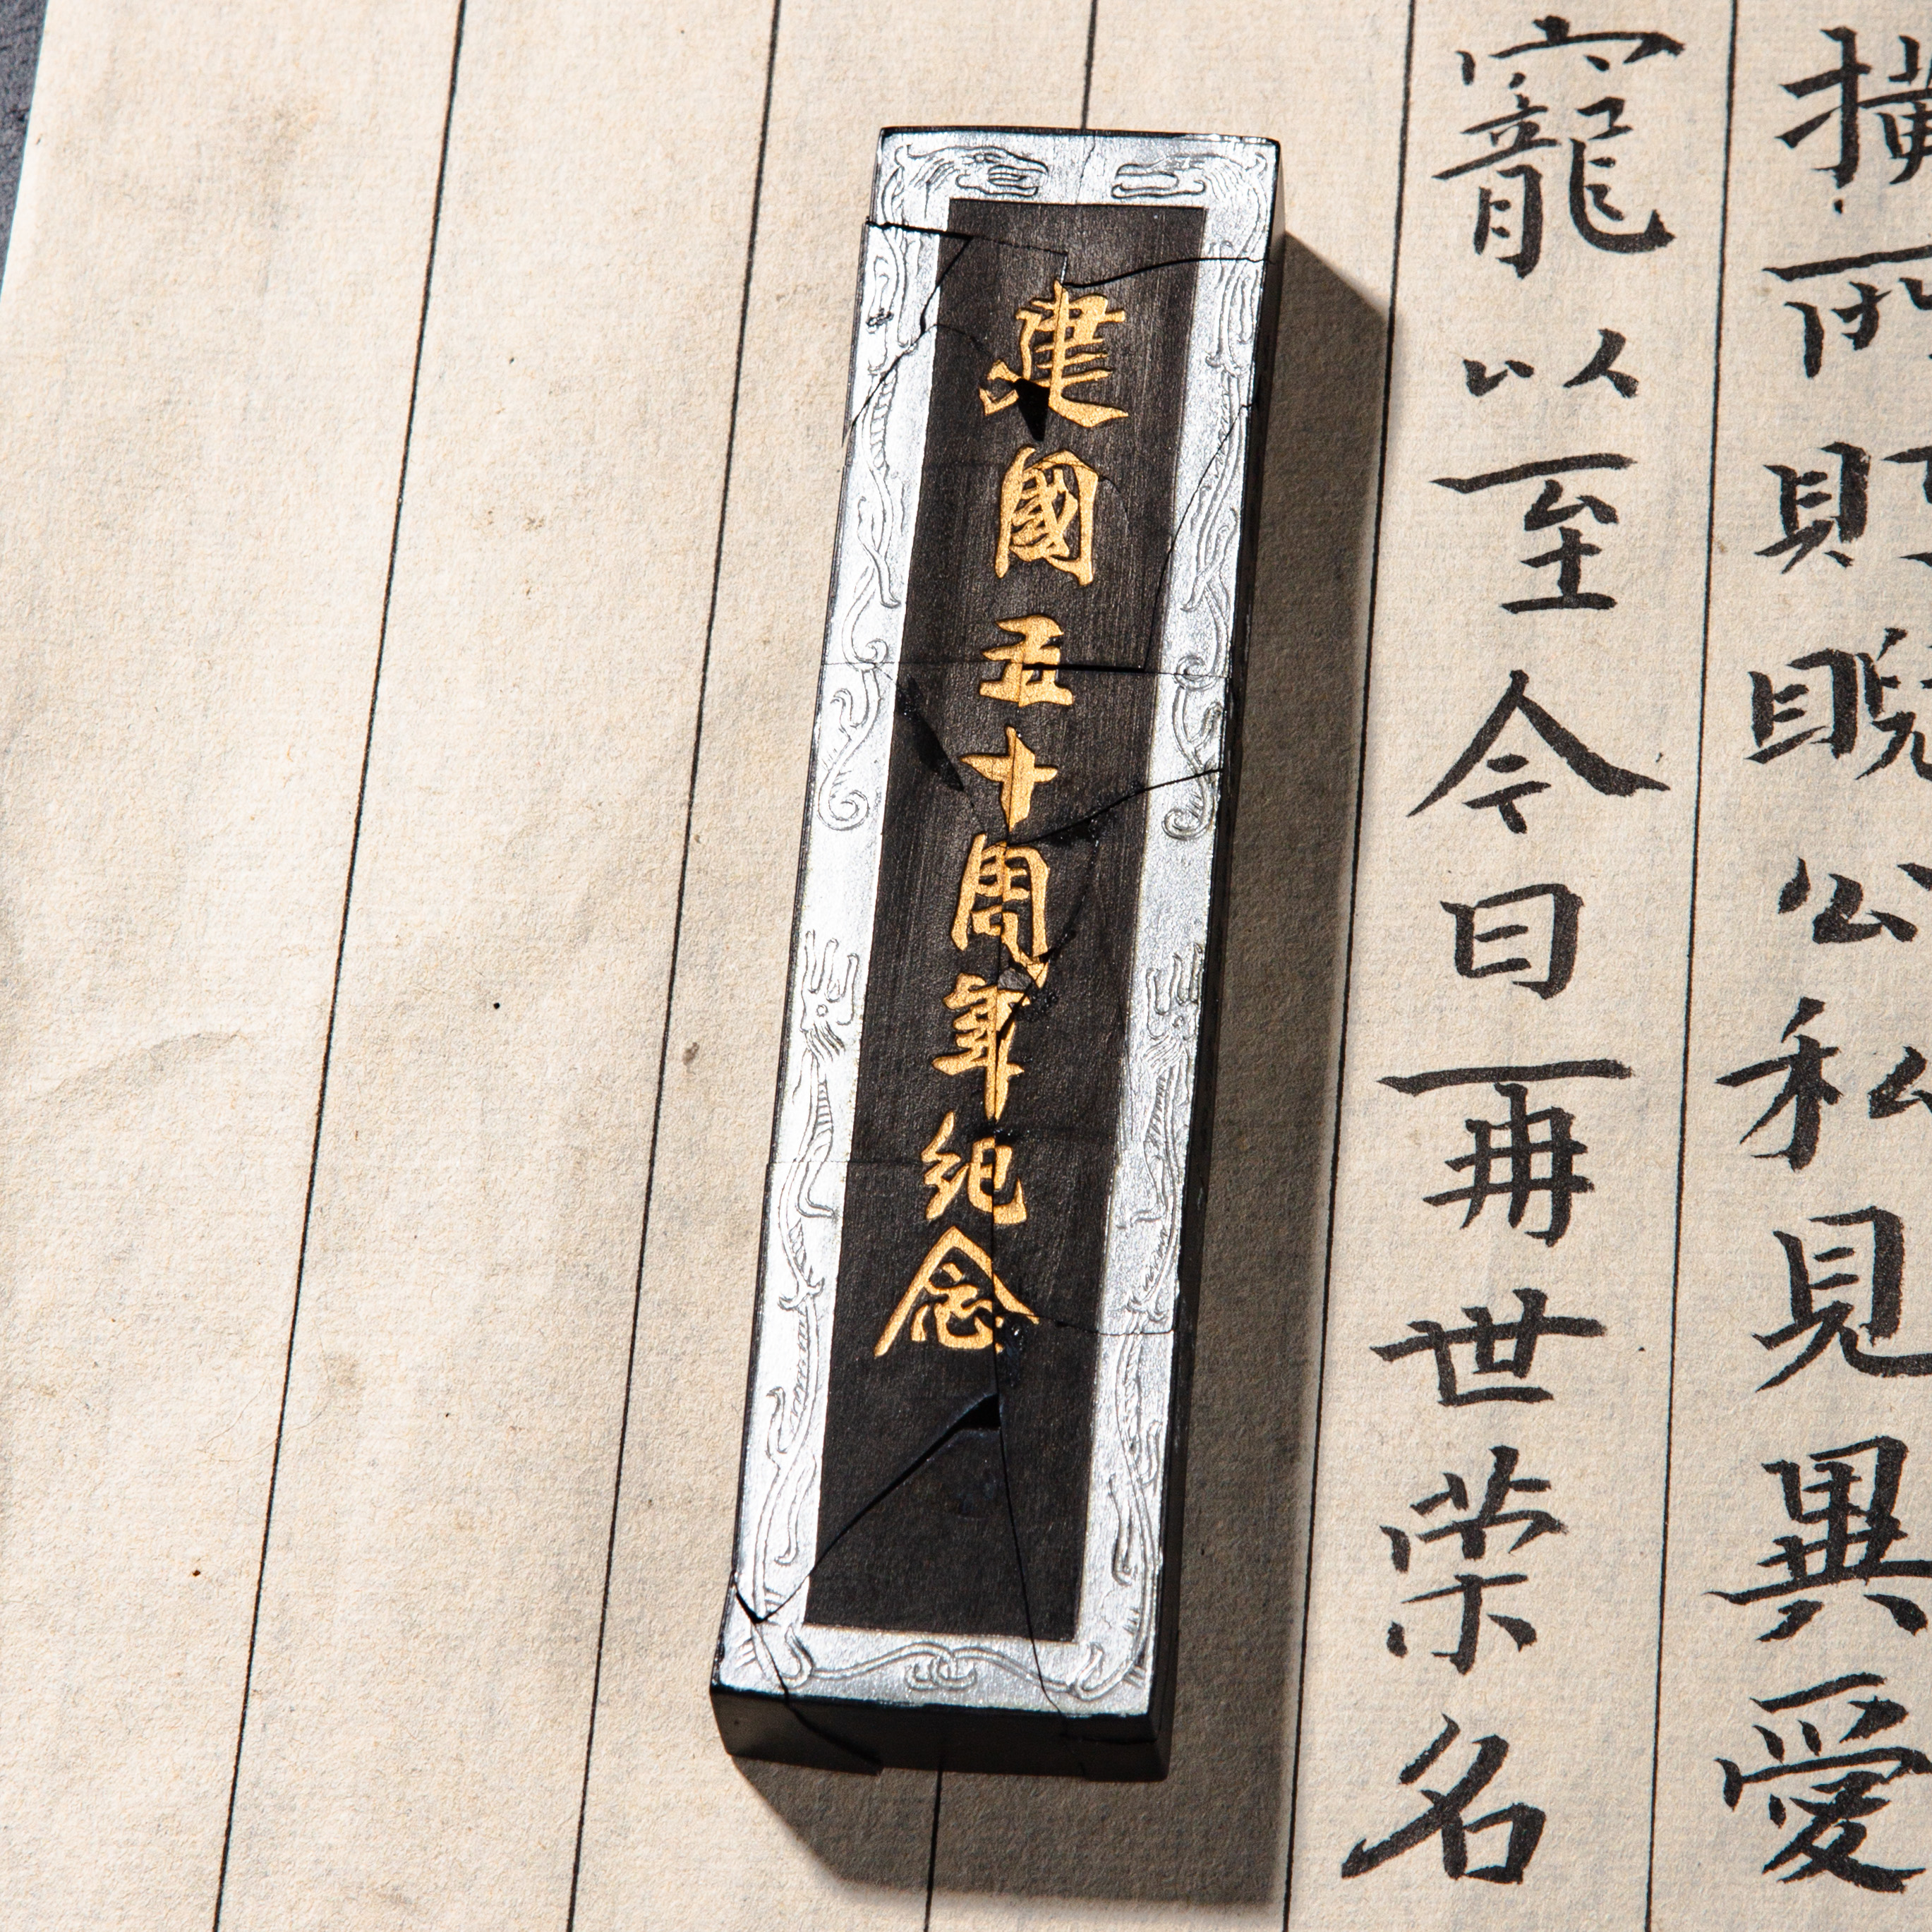 横睨公私見異愛
寵以至今日再世荣名
建國五十周年紀念